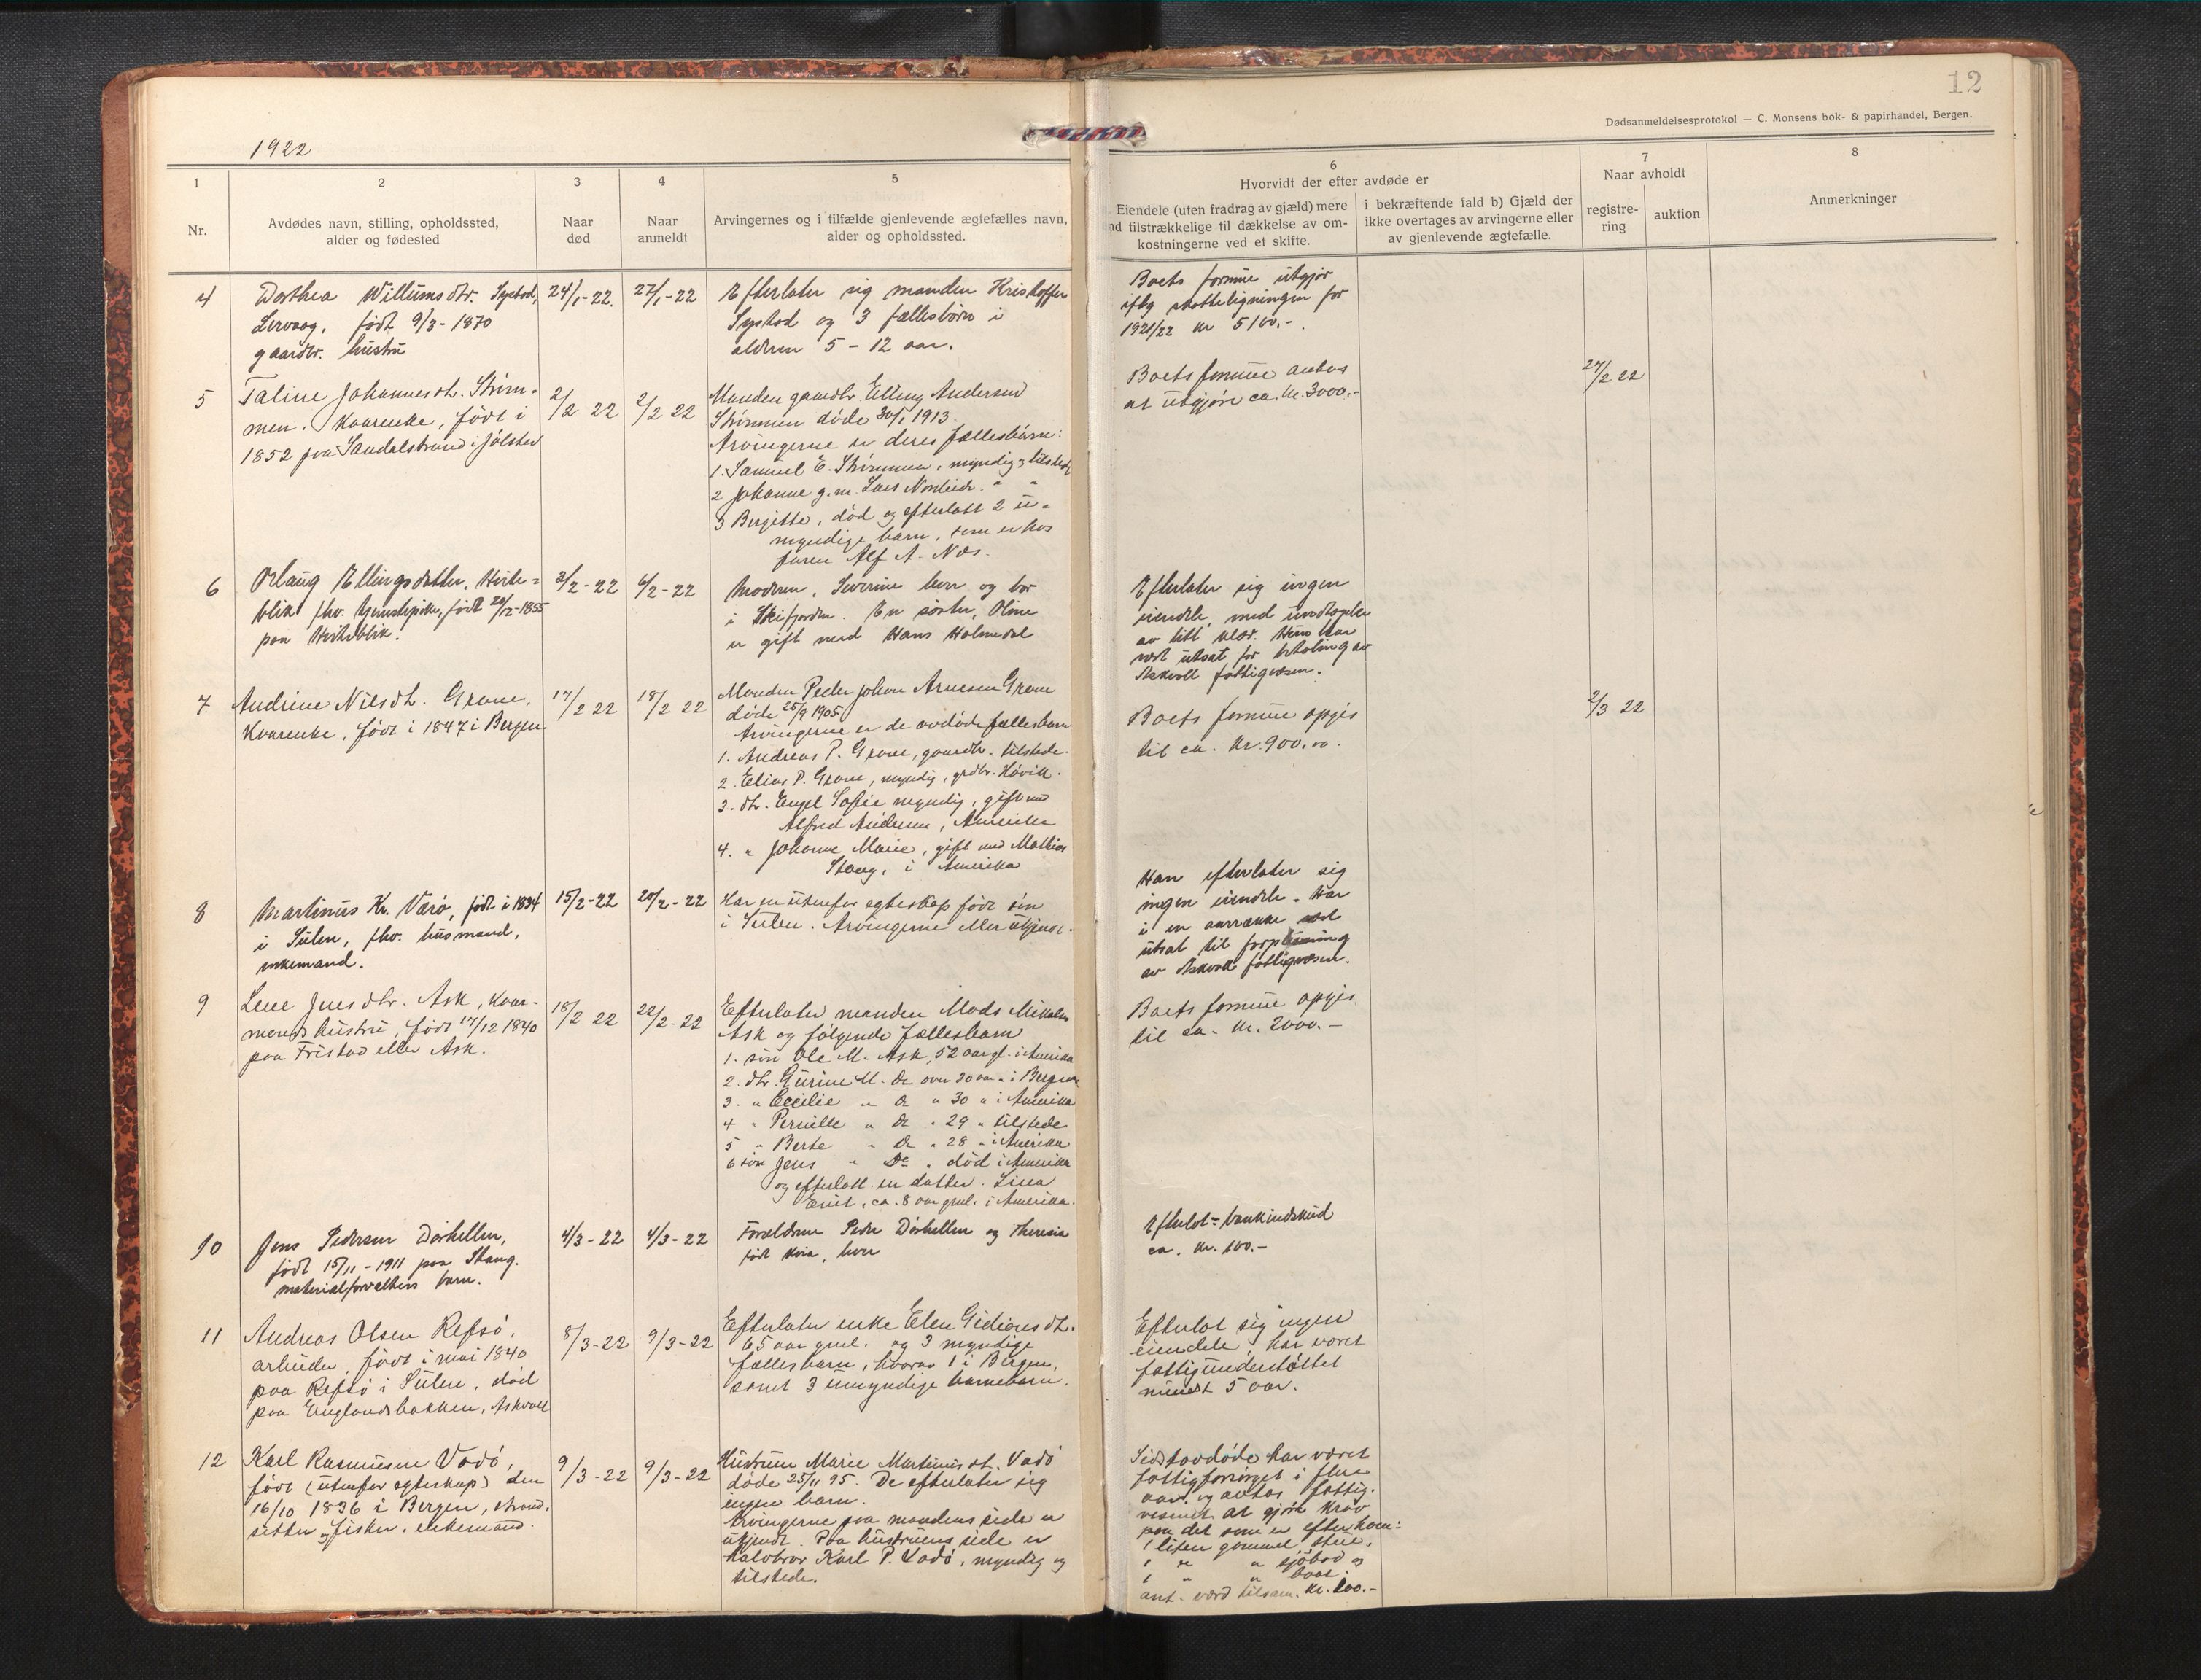 12
Dødsanmeldelsesprotokol — C. Monsens bok- & papirhandel, Bergen.
1922
1
2
3
4
5
6
7
8
Nr.
Avdødes navn, stilling, opholdssted,
alder og fødested
Naar
død
Naar
anmeldt
Arvingernes og i tilfælde gjenlevende ægtefælles navn,
alder og opholdssted.
Hvorvidt der efter avdøde er
Eiendele (uten fradrag av gjæld) mere
nd tilstrækkelige til dækkelse av om-
kostningerne ved et skifte.
i bekræftende fald b) Gjæld der
ikke overtages av arvingerne eller
av gjenlevende ægtefælle.
Naar avholdt
registre-
ring
auktion
Anmerkninger
4
Dorthea Willumsdtr. Systad,
Lervaag, født 9/3-1870
gaardbr. hustru
24/1-22.
27/1-22
Efterlater sig manden Kristoffer
Systad og 3 fællesbørn i
alderen 5-12 aar.
Boets formue utgjør
iflg skatteligningen for
1921/22 kr 5100.-.
5
Taline Johannesdt. Strøm-
men. Kaarenke, født i
1852 paa Sandalstrand i Jølster
2/2 22
2/2 22
Manden gaardbr. Elling Andersen
Strømmen døde 30/1 1913.
Arvingerne er deres fællesbarn:
1. Samuel E. Strømmen, myndig og tilstede
2 Johanne g.m. Lars Nordeide. " "
3 Bergitte, død og efterlatt 2 u-
myndige barn, som er hos
faren Alf A. Næs.
Boets formue antas
at utgjøre ca. kr. 3000.-
27/2 22
6
Orlaug Ellingsdatter, Hvite-
blik fhv. tjenestepike, født 29/12-1855
paa Hviteblik.
3/2-22
6/2-22
Moderen, Severine lever og bor
i Skifjorden. En søster, Oline
er gift med Hans Holmedal
Efterlater sig ingen
eiendele, med undtagelse
av litt klær. Hun har
vært utsat for betaling av
Askvoll fattigvæsen.
7
Andrine Nilsdt. Grane,
Kaarenke, født i 1847 i Bergen.
17/2 22
18/2 22
Manden Peder Johan Arnesen Grane
døde 25/9 1905
Arvingerne er de avdødes fællesbarn
1. Andreas P. Grane, gaardbr. tilstede.
2. Elias P. Grane, myndig, grdbr. Høvik.
3. dtr. Engel Sofie myndig, gift med
Alfred Andersen, Amerika
4. " Johanne Marie, gift med Mathias
Stang, i Amerika
Boets formue opgis
til ca. kr. 900.00.
2/3 22
8
Martinus Kr. Værø, født i 1834
i Sulen, fhv. husmand,
enkemand.
15/2-22
20/2-22
Har en utenfor egteskap født søn
i Sulen. Arvingerne eller ukjendt.
Han efterlater sig
ingen eiendele. Har
i en aarrække vært
utsat til forpleining
av Askvoll fattigvæsen.
9
Lene Jensdtr. Ask, kaar-
mands hustru, født 17/12 1840
paa Fristad eller Ask.
18/2 22
22/2-22
Efterlater manden Mads Mikalsen
Ask og følgende fællesbarn
1. søn Ole M. Ask, 52 aar gl. i Amerika
2. dtr. Gurine M. do over 30 aar " i Bergen
3. " Cecilie " do " 30 " i Amerika
4 " Pernille " do " 29 " tilstede
5 " Berte " do " 28 " i Amerika
6 søn Jens " do " død i Amerika
og efterlatt en datter. Lina
Enit, ca. 8 aar gml. i Amerika.
Boets formue opgis
til ca. kr. 2000.-
10
Jens Pedersen Dørhellen,
født 15/11-1911 paa Stang.
materialforvalters barn.
4/3-22
4/3-22
Forældrene Peder Dørhellen og Theresia
født Kvia, lever
Efterlot bankindskud
ca. kr. 100.-
11
Andreas Olsen Refsø,
arbeider, født i mai 1840
paa Refsø i Sulen, død
paa Englandsbakken, Askvoll
8/3-22
9/3-22
Efterlater enke Elen Gidionsdt.
65 aar gml. og 3 myndige
fællesbarn, hvorav 1 i Bergen,
samt 3 umyndige barnebarn.
Efterlot sig ingen
eiendele, har været
fattigunderstøttet
mindst 5 aar.
12
Karl Rasmussen Vadø,
født (utenfor egteskap) den
16/10 1836 i Bergen, strand-
sitter og fisker, enkemand.
9/3-22
9/3-22
Hustruen Marie Martinusdt. Vadø
døde 25/11 95. De efterlater sig
ingen barn.
Arvingerne paa mandens side er
ukjendt. Paa hustruens side er
halvbror Karl P. Vadø, myndig og
tilstede.
Sidstavdøde har været
fattigforsørget i flere
aar og antas fattig-
vesenet at gjøre krav
paa det som er efter ham:
1 liten gammel stue,
1 do " sjøbod og
1 " " baat.
ant. værd tilsam. kr. 200.-